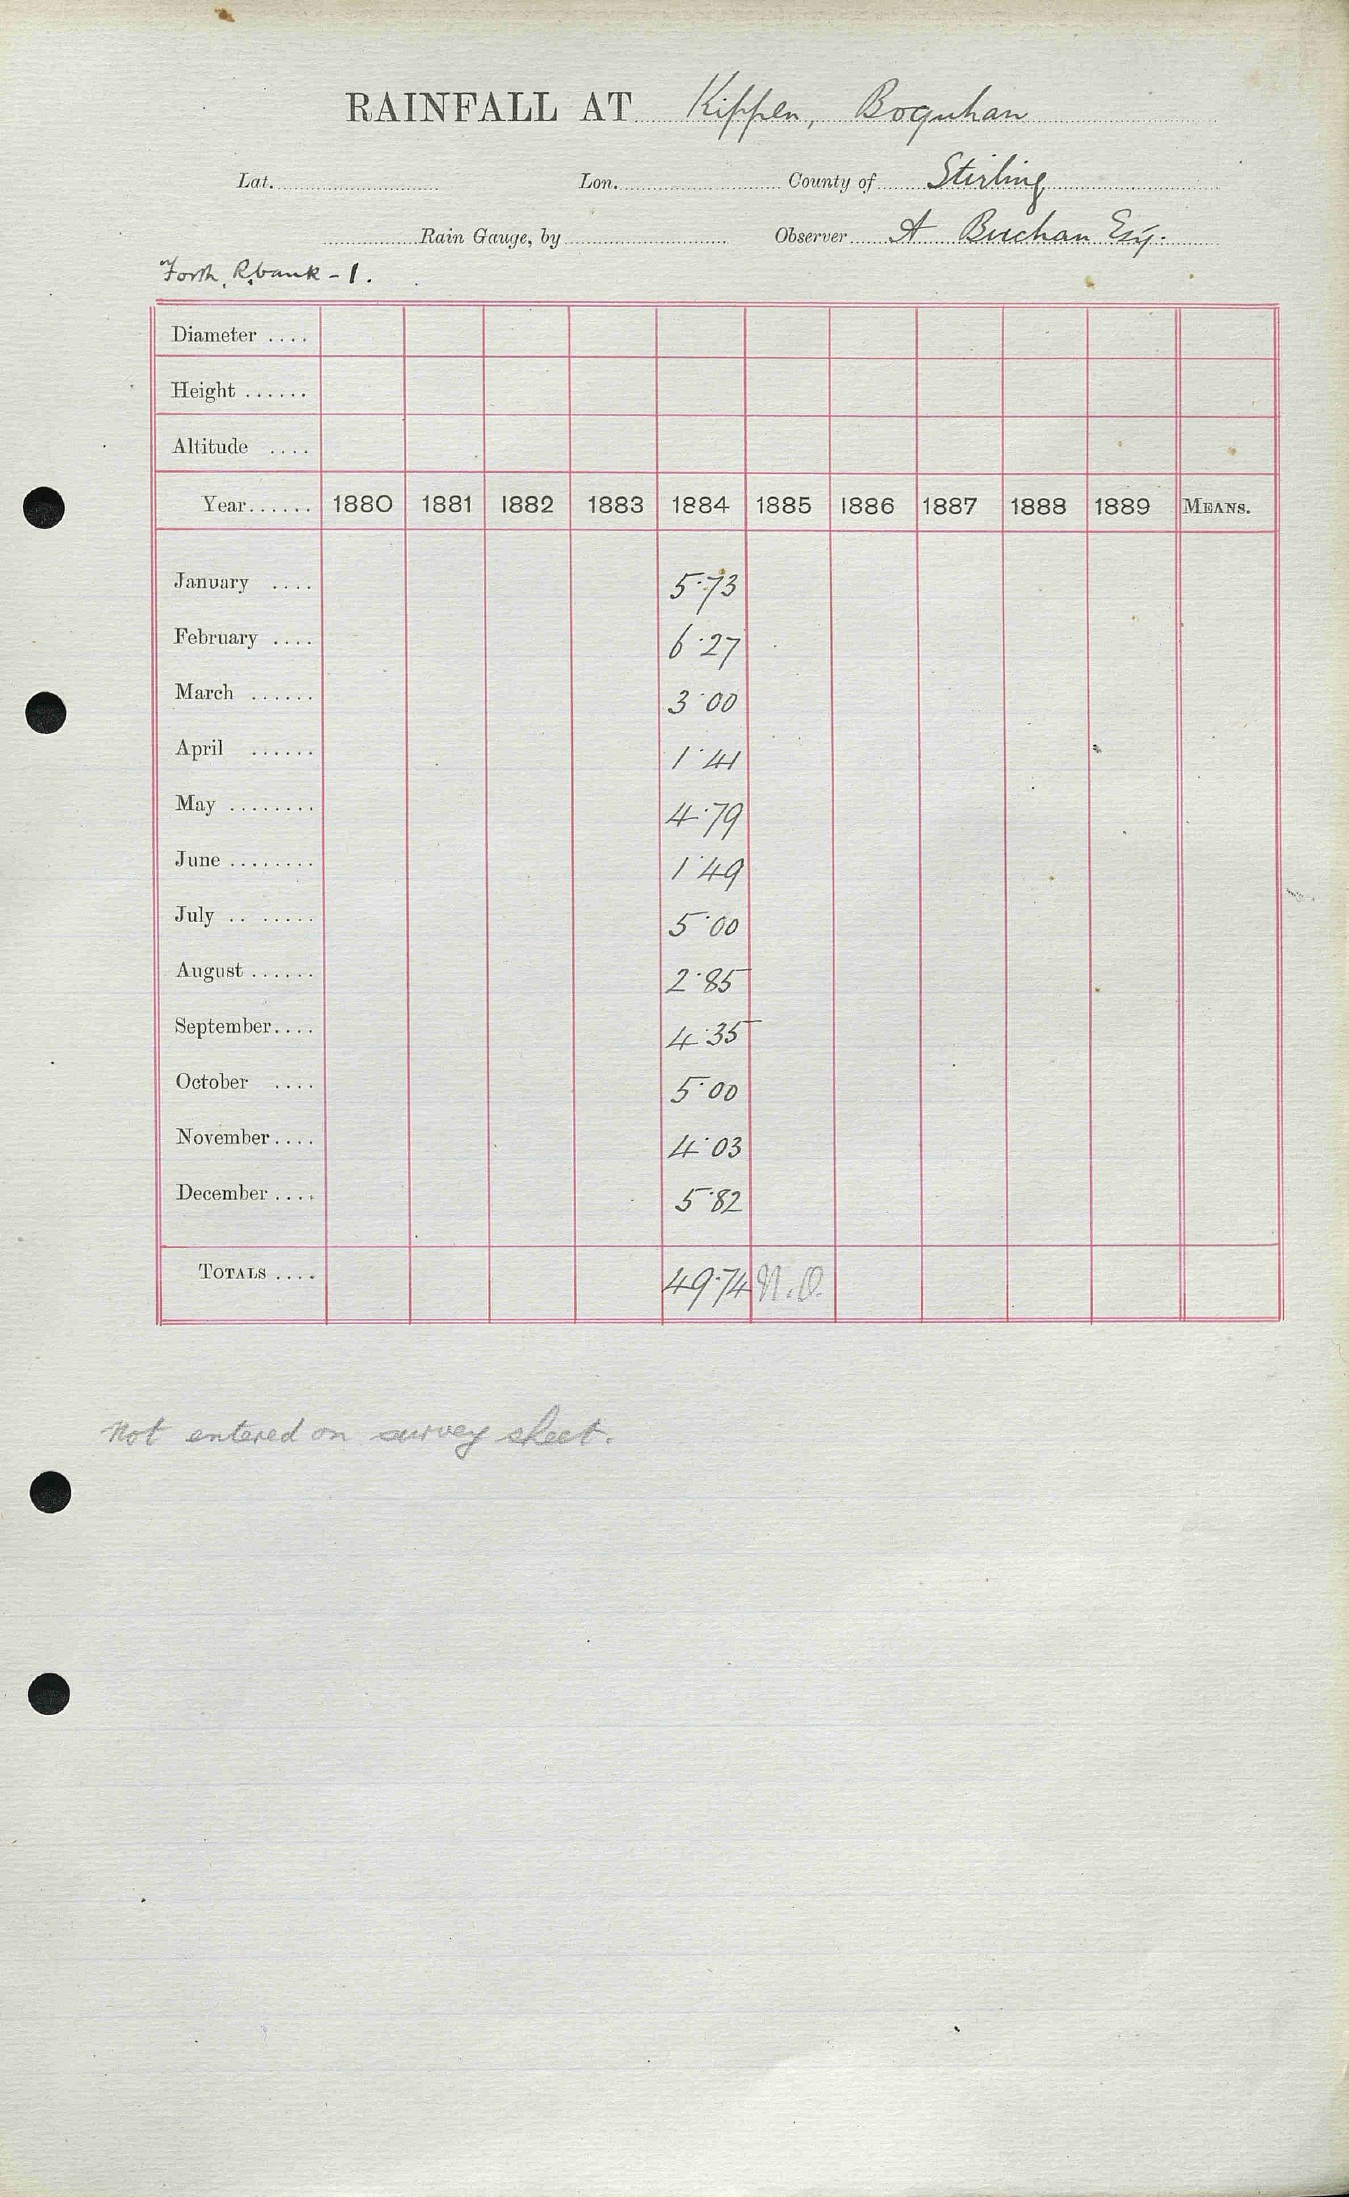 RAINFALL AT Kippen, Boquhan
Lat. Lon. County of Stirling
Rain Gauge, by Observer A Buchan Esq.
Forth, R.bank - 1.
Diameter ....
Height ......
Altitude ....
Year...... 1880 1881 1882 1883 1884 1885 1886 1887 1888 1889 MEANS.
January .... 5.73
February .... 6.27
March ...... 3.00
April ...... 1.41
May ........ 4.79
June ........ 1.49
July .. ..... 5.00
August ...... 2.85
September.... 4.35
October .... 5.00
November.... 4.03
December.... 5.82
TOTALS .... 49.74 N.O.
Not entered on survey sheet.